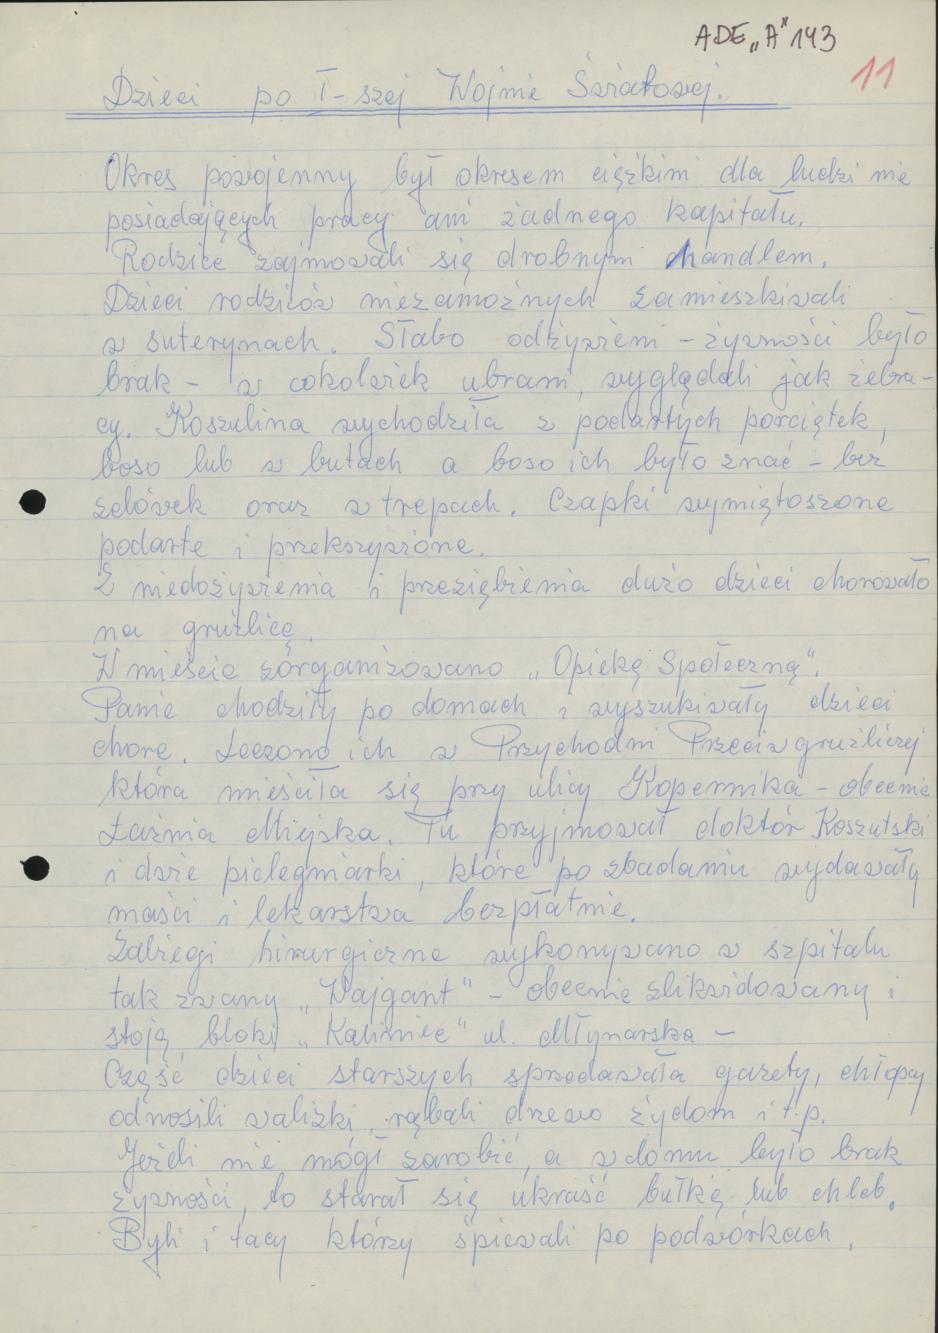 ADE „A” 143
11
Dzieci po I-szej Wojnie Światowej.
Okres powojenny był okresem ciężkim dla ludzi nie
posiadających pracy ani żadnego kapitału.
Rodzice zajmowali się drobnym handlem.
Dzieci rodziców niezamożnych zamieszkiwali
w suterynach. Słabo odżywieni – żywności było
brak – w cokolwiek ubrani, wyglądali jak żebra-
cy. Koszulina wychodziła z podartych porciętek,
boso lub w butach a boso ich było znać – bez
zelówek oraz w trepach. Czapki wymiętoszone
podarte i przekszywione.
Z niedożywienia i przeziębienia dużo dzieci chorowało
na gruźlicę.
W mieście zorganizowano „Opiekę Społeczną”.
Panie chodziły po domach i wyszukiwały dzieci
chore. Leczono ich w Przychodni Przeciwgruźliczej
która mieściła się przy ulicy Kopernika – obecnie
Łaźnia Miejska. Tu przyjmował doktór Koszutski
i dwie pielęgniarki, które po zbadaniu wydawały
maści i lekarstwa bezpłatnie.
Zabiegi hirurgiczne wykonywano w szpitalu
tak zwany „Wajgant” – obecnie zlikwidowany i
stoją bloki „Kaliniec” ul. Młynarska –
Część dzieci starszych sprzedawała gazety, chłopcy
odnosili walizki, rąbali drzewo żydom i t.p.
Jeżeli nie mógł zarobić, a w domu było brak
żywności, to starał się ukraść bułkę lub chleb.
Byli i tacy którzy śpiewali po podwórkach,